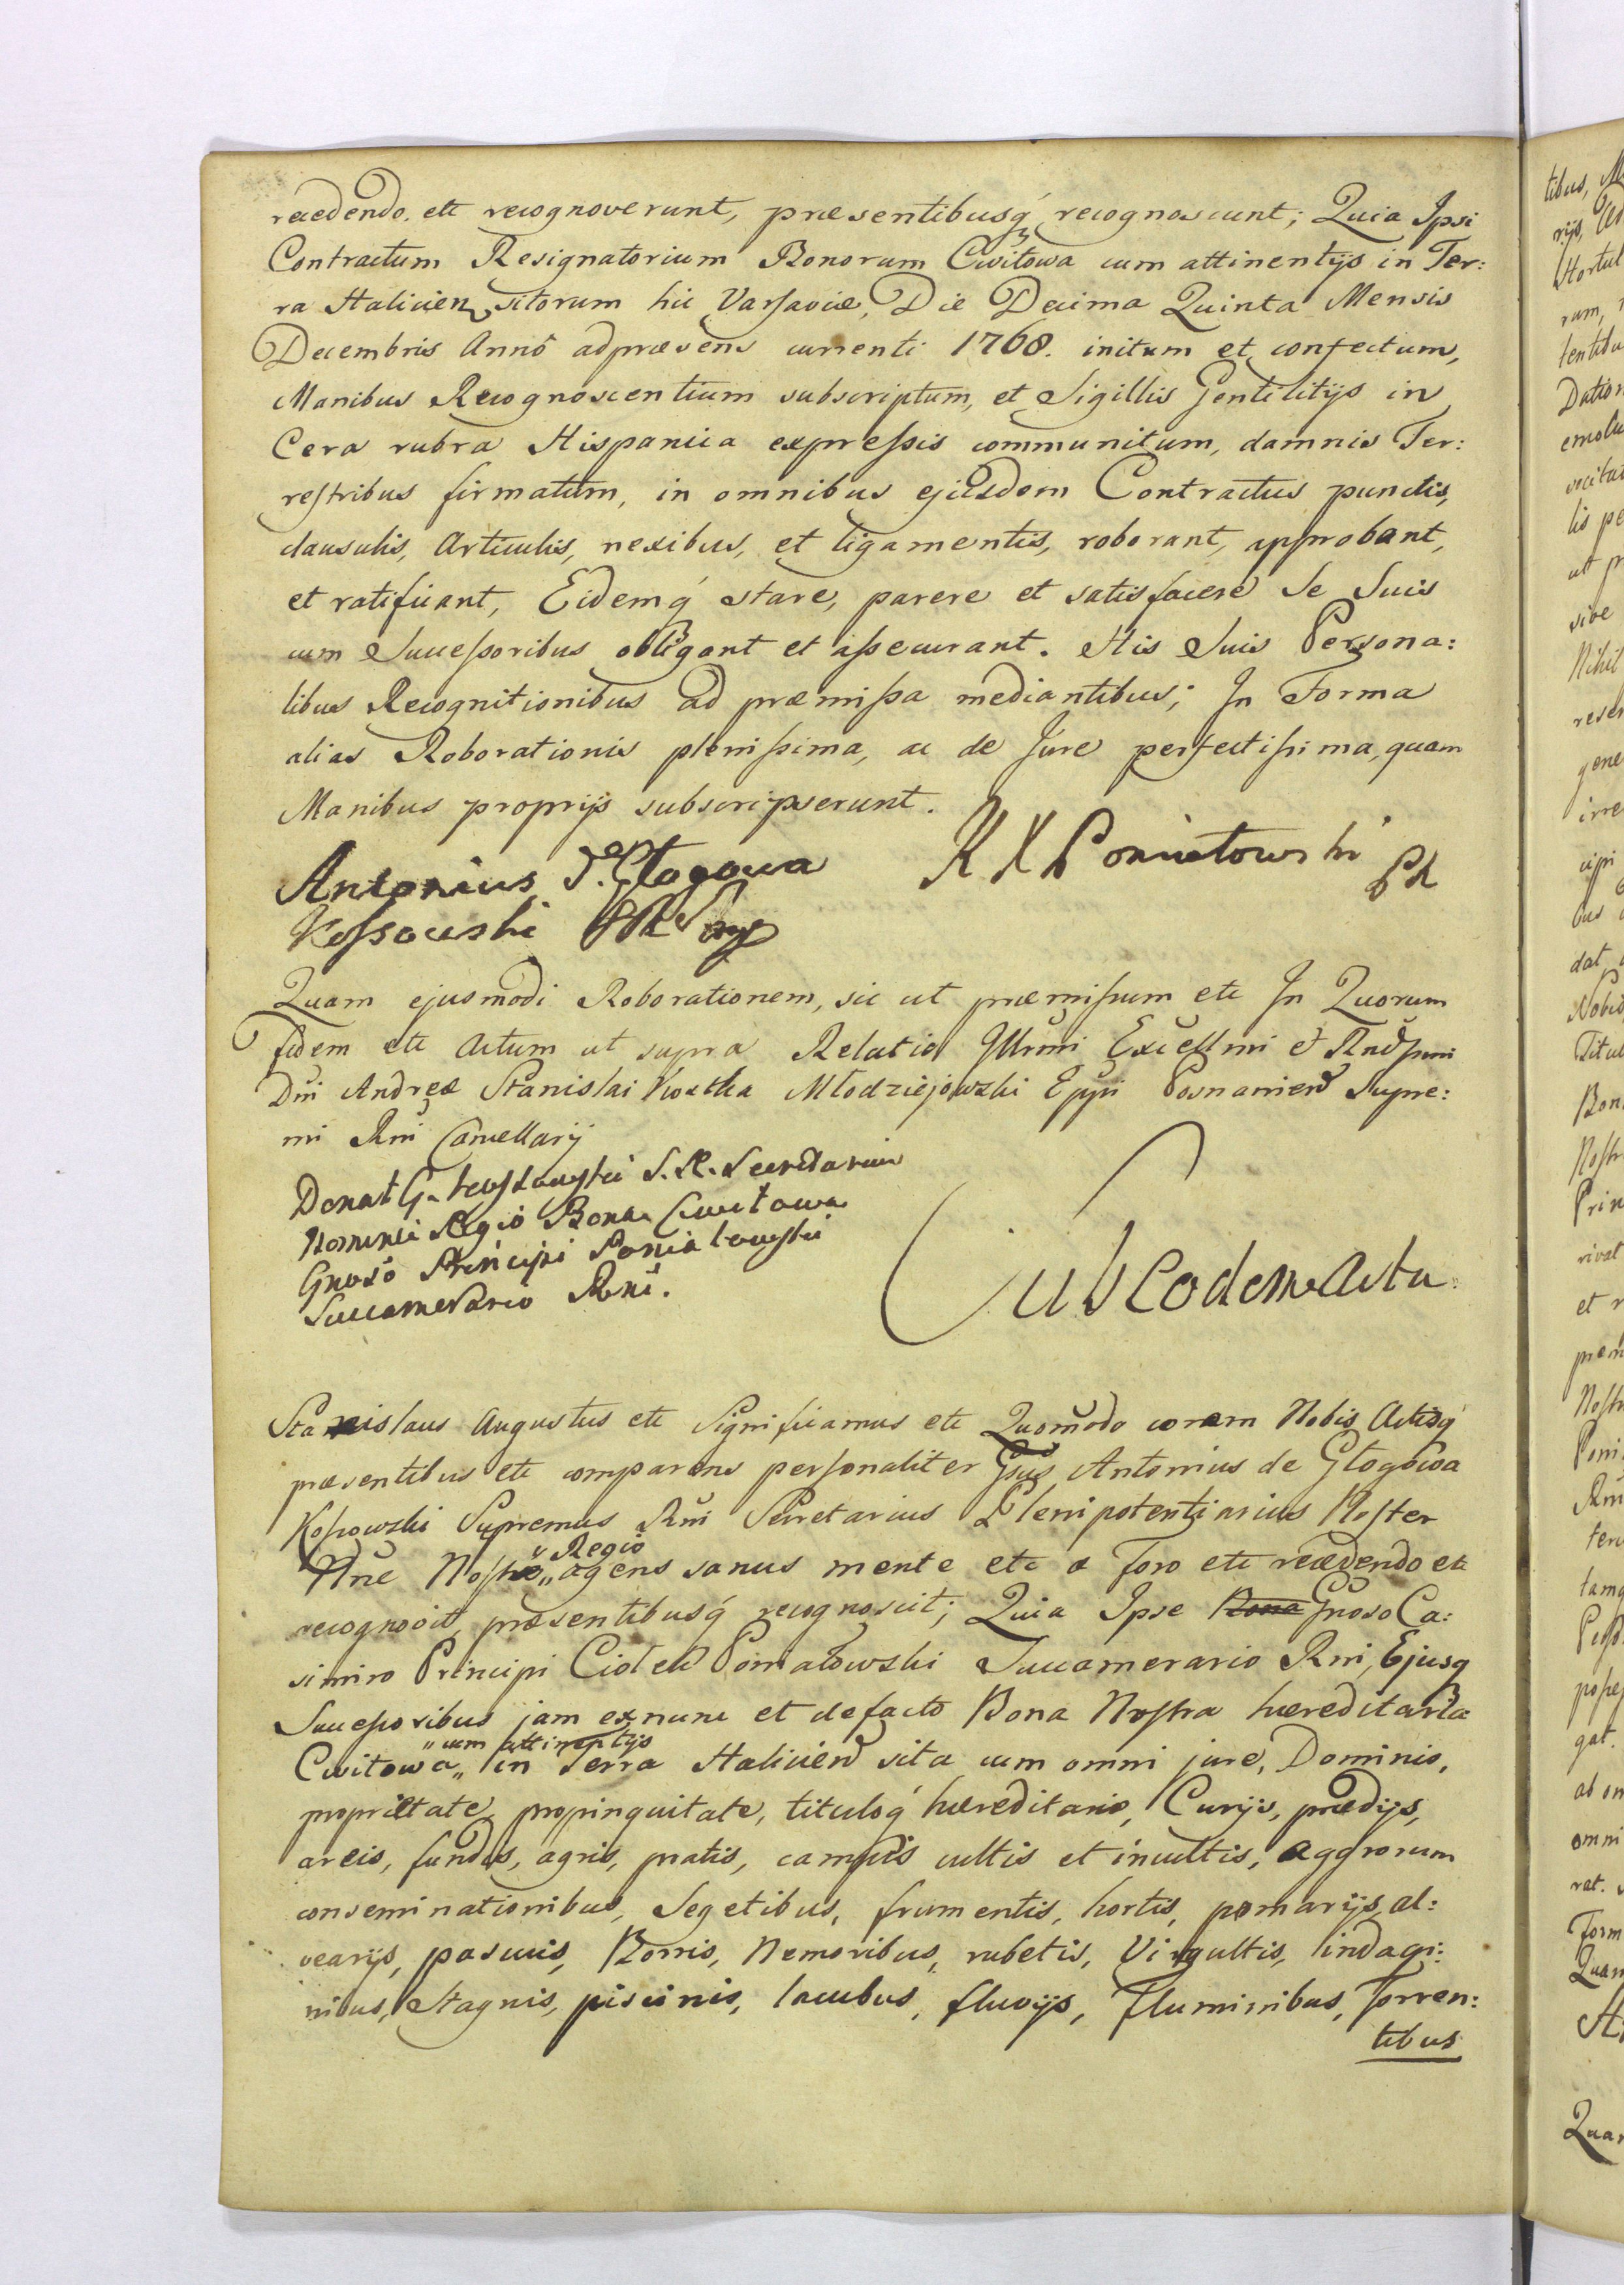 recedendo. etc recognoverunt, præsentibusq́ recognoscunt; Quia Ipsi
Contractum Resignatorium Bonorum Cwitowa cum attinentijs in Ter:
ra Halicien sitorum hic Varsaviæ, Die Decima Quinta Mensis
Decembris Anno adpræsens currenti 1768. initum et confectum,
Manibus Recognoscentium subscriptum, et Sigillis Gentilitijs in
Cera rubra Hispanica expressis communitum, damnis Ter:
restribus firmatum, in omnibus ejusdem Contractus punctis,
clausulis, Articulis, nexibus, et ligamentis, roborant, approbant,
et ratificant, Eidemq́ stare, parere et satisfacere Se Suis
cum Successoribus obligant et assecurant. His Suis Persona:
libus Recognitionibus ad præmissa mediantibus; In Forma
alias Roborationis plenissima, ac de Jure perfectissima, quam
Manibus proprijs subscripserunt.
Antonius d. Głogowa
Kossowski
K X Poniatowski PK
Quam ejusmodi Roborationem, sic ut præmissum etc In Quorum
fidem etc Actum ut supra Relatio Illrmi Excellmi et Rndssmi
Dni Andreæ Stanislai Kostka Młodziejowski Eppi Posnanien Supre:
mi Rni Cancellarij
Donat G. S. R. Secretarius
Nomine Regio Bona Cwitowa
Gnoso Principi Poniatowski
Succamerario Rni.
Sub Eodem Actu.
Stanislaus Augustus etc Significamus etc Quomodo coram Nobis Actisq́
præsentibus etc comparens personaliter Gsus Antonius de Głogowa
Kossowski Supremus Rni Secretarius Plenipotentiarius Noster
" Regio
Nne Nostro „ agens sanus mente etc a Foro etc recedendo etc
recognovit, præsentibusq́ recognoscit; Quia Ipse Bona Gnoso Ca:
simiro Principi Ciołek Poniatowski Succamerario Rni, Ejusq
Successoribus jam exnunc et defacto Bona Nostra hæreditaria
" cum attinentijs
Cwitowa „ in Terra Halicien sita cum omni jure, Dominio,
proprietate, propinquitate, tituloq́ hæreditario, Curijs, prædijs,
areis, fundis, agris, pratis, campis cultis et incultis, aggrorum
conseminationibus, Segetibus, frumentis, hortis, pomarijs, al:
vearijs, pascuis, Borris, Nemoribus, rubetis, Virgultis, indagi:
nibus, Stagnis, piscinis, lacubus, fluvijs, Fluminibus, Torren:
tibus